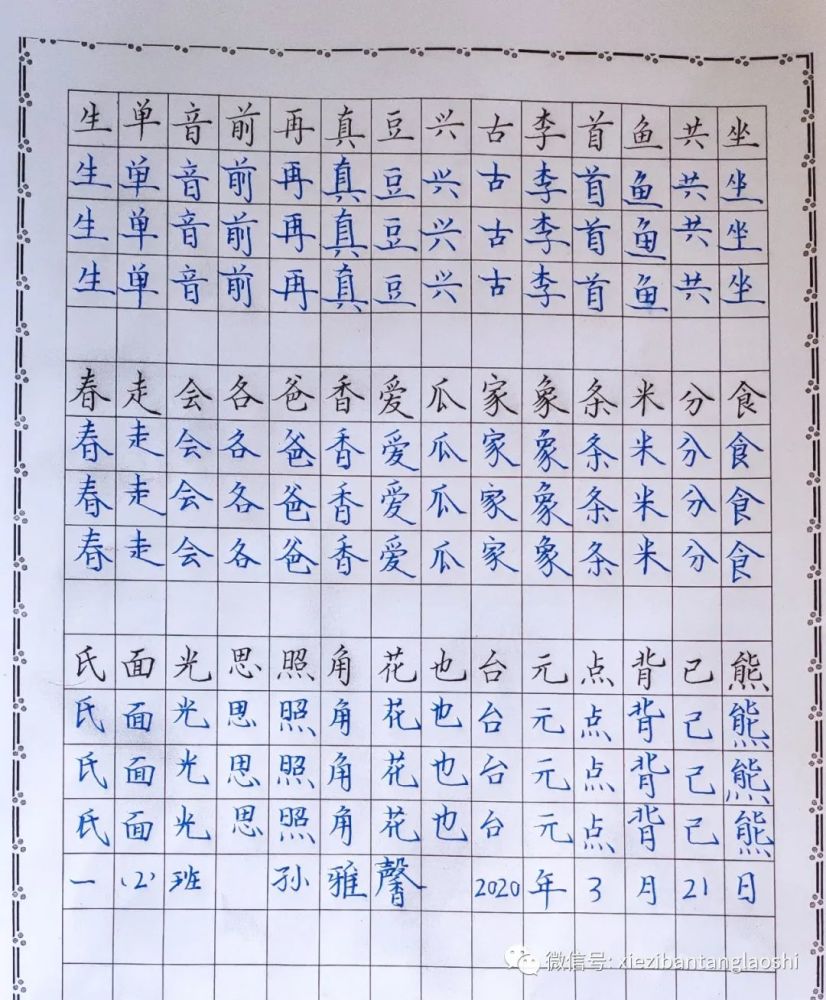 生单音前再真豆兴古李首鱼共坐
生单音前再真豆兴古李首鱼共坐
生单音前再真豆兴古李首鱼共坐
生单音前再真豆兴古李首鱼共坐
春走会各爸香爱瓜家象条米分食
春走会各爸香爱瓜家象条米分食
春走会各爸香爱瓜家象条米分食
春走会各爸香爱瓜家象条米分食
氏面光思照角花也台元点背己熊
氏面光思照角花也台元点背己熊
氏面光思照角花也台元点背己熊
氏面光思照角花也台元点背己熊
一(2)班 孙雅馨 2020年3月21日
微信号: xiezibantanglaoshi